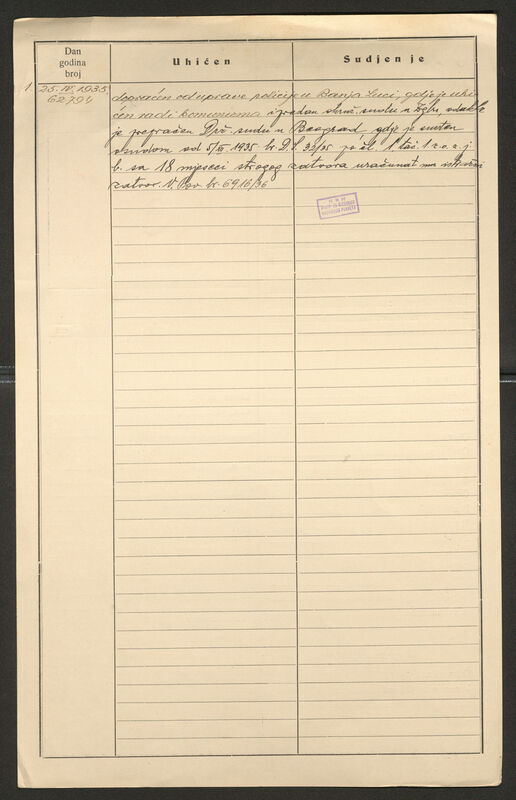 Dan
godina
broj
Uhićen
Sudjenje
1. 25.IV.1935
62794
dopraćen od uprave policije u Banja Luci, gdje je uhi-
ćen radi komunizma i predan okruž. sudu u Zgbu odakle
je popraćen Drž. sudu u Beograd gdje je
osudom od 5/III 1935 br. D.S. 32/35 po čl. 1 tač. 1 z. o. z. j.
b. sa 18 mjeseci strogog zatvora uračunat mu istražni
zatvor. V. Pov br. 6910/36